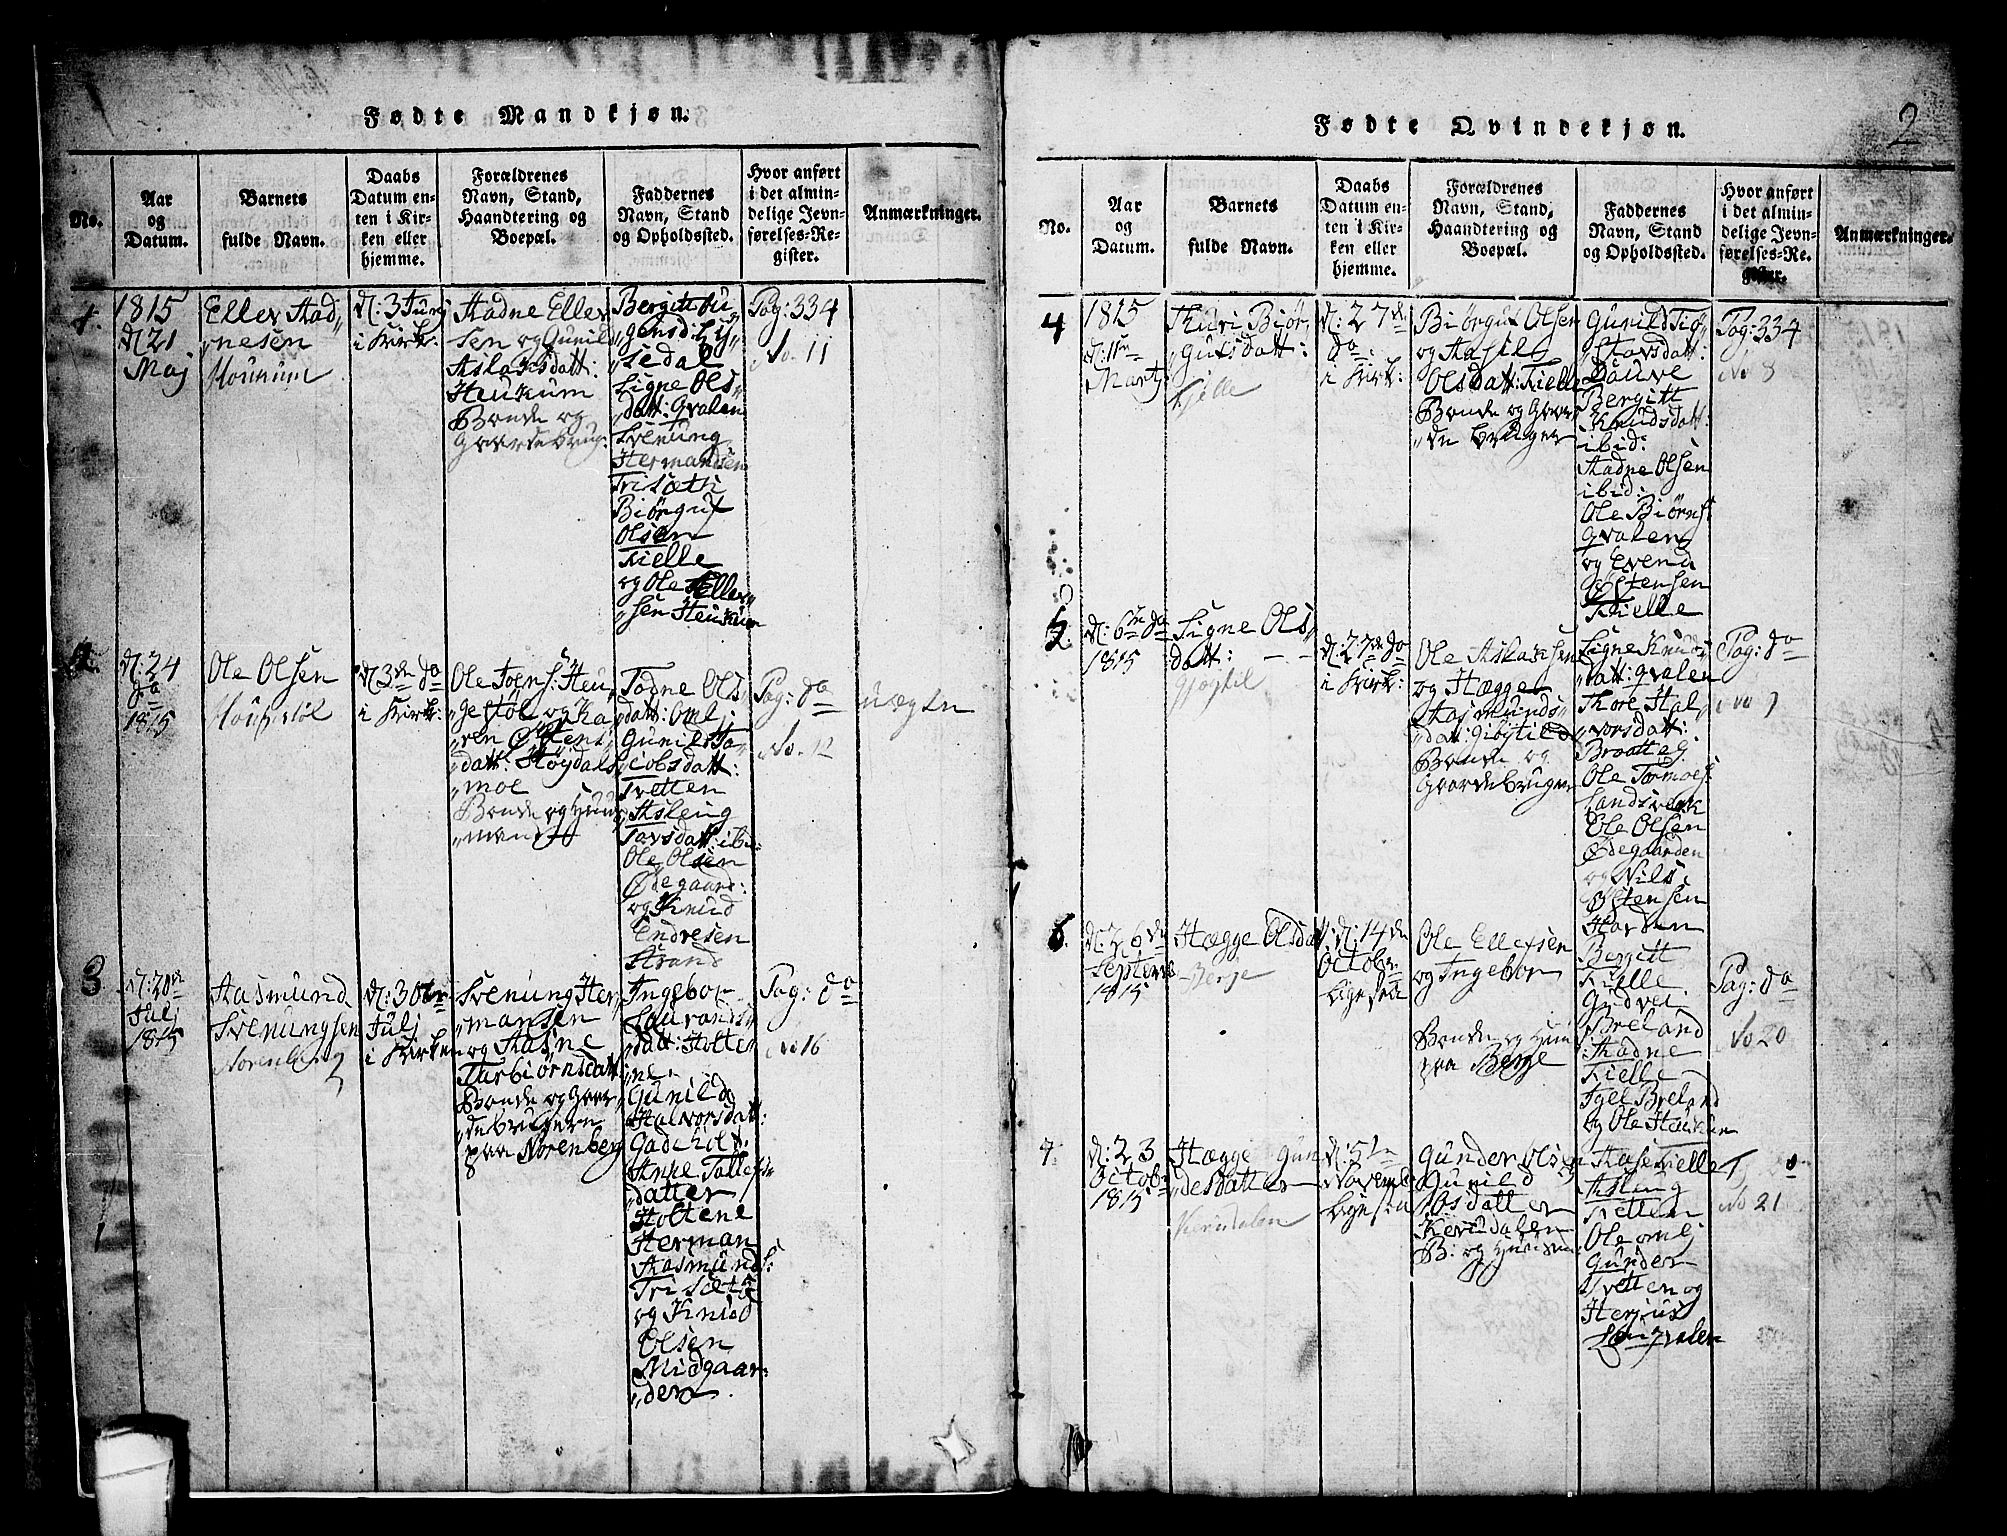 Fødte Mandkjøn.
No.
Aar
og
Datum.
Barnets
fulde Navn.
Daabs
Datum en-
ten i Kir-
ken eller
hjemme.
Forældrenes
Navn, Stand,
Haandtering og
Boepæl.
Faddernes
Navn, Stand
og Opholdssted.
Hvor anført
i det almin-
delige Jevn-
førelses-Re-
gister.
Anmærkninger.
1.
1815
d: 21
Maj
Ellev Stad„
„nesen
Houkum
d: 3 Junj
i Kirk:
Stadne Ellev
sen og Gunild
Aslaksdatt:
Heukum
Bonde og
Gaardebrug:
Bergit Hu
„gensd:
„sedal
Signe Ols„
„datt: Qvalen
Svenung
Hermandsen
Trisæth
Biørguf
Olsen
Kielle
og Ole Ellev„
„sen Heukum
Pag: 334
No. 11
2.
d: 24
do
1815
Ole Olsen
d 3de do
i Kirk:
Ole Joens: Heu„
„gestøl og Ka„
„ren Østens„
„datt: Høydals„
„moe
Bonde og Huus„
„mand
Tadne Ols„
„datt: Omlj
Gunild Ja„
„cobsdatt:
Tvetten
Aslaug
Tovsdatt: ibi:
Ole Olsen
Ødegaard:
og Knud
Endresen
Strand
Pag: do
No. 12
uægte
3
d: 20de
Julj
1815
Aasmund
Svenungsen
Norenberg
d: 30te
Julj
i Kirken
Svenung Her„
„mansen
og Aasne
Turbiørnsdatt
Bonde og Gaar„
„debrugere
paa Norenberg
Ingebor
Lavrands„
„datt: Holte„
„ne.
Gunild
Halvorsdatt:
Gadeholt
Anne Tollefs„
„datter
Holtene
Herman
Aasmunds:
Trisæth
og Knud
Olsen
Midgaar„
„den.
Pag: do
No 16
Fødte Qvindekjøn.
2
No.
Aar
og
Datum.
Barnets
fulde Navn.
Daabs
Datum en-
ten i Kir-
ken eller
hjemme.
Forældrenes
Navn, Stand,
Haandtering og
Boepæl.
Faddernes
Navn, Stand
og Opholdssted.
Hvor anført
i det almin-
delige Jevn-
førelses-Re-
gister.
Anmærkninger.
4
1815
d: 11te
Martj
Thuri Biør„
„gufsdatt:
Kjelle
d: 27de
do
i Kirk:
Biørguf Olsen
og Aasil
Olsdatt: Kielle
Bonde og Gaar
„de bruger
Gunild
„Stavsdatt:
Dauve
Bergitt
Knudsdatt:
ibid:
Stadne Olsen
ibid:
Ole Biørns:
Qvalen
og Evend
Østensen
Kielle
Pag: 334
No 8
5.
d: 6te do
1815
Signe Ols„
datt:
Gjøytil
d: 27de do
i Kirk:
Ole Aslaksen
og Hægge
Aasmunds„
„datt: Giøytild
Bonde og
Gaardebruger
Signe Knuds
„datt: Qvalen
Thore Hal„
„vorsdatt:
Braatteg.
Ole Tormoes:
Landsverk
Ole Olsen
Ødegaarden
og Nils
Østensen
Harden
Pag: do
No 9
6.
d: 26de
Septem
1815
Hægge Olsdatt
Berge
d: 14de
Octobr
ligesaa
Ole Ellefsen
og Ingebor
Bonde og Huus
paa Berge
Bergitt
Kielle
Gudvei
Breland
Aadne
Kielle
Egil Breland
og Ole Haukum
Pag: do
No 20
7.
d: 23
Octobr
1815
Hægge Gun
„desdatter
Kerudalen
d: 5te
Novemb
ligesaa
Gunder Olsen
Gunild
Olsdatter
Kerudalen
B: og Huusm:
Aase Kielle
Aslaug
Kitten
Ole Omlj
Gunder
Tvetten og
Herjus
No 21